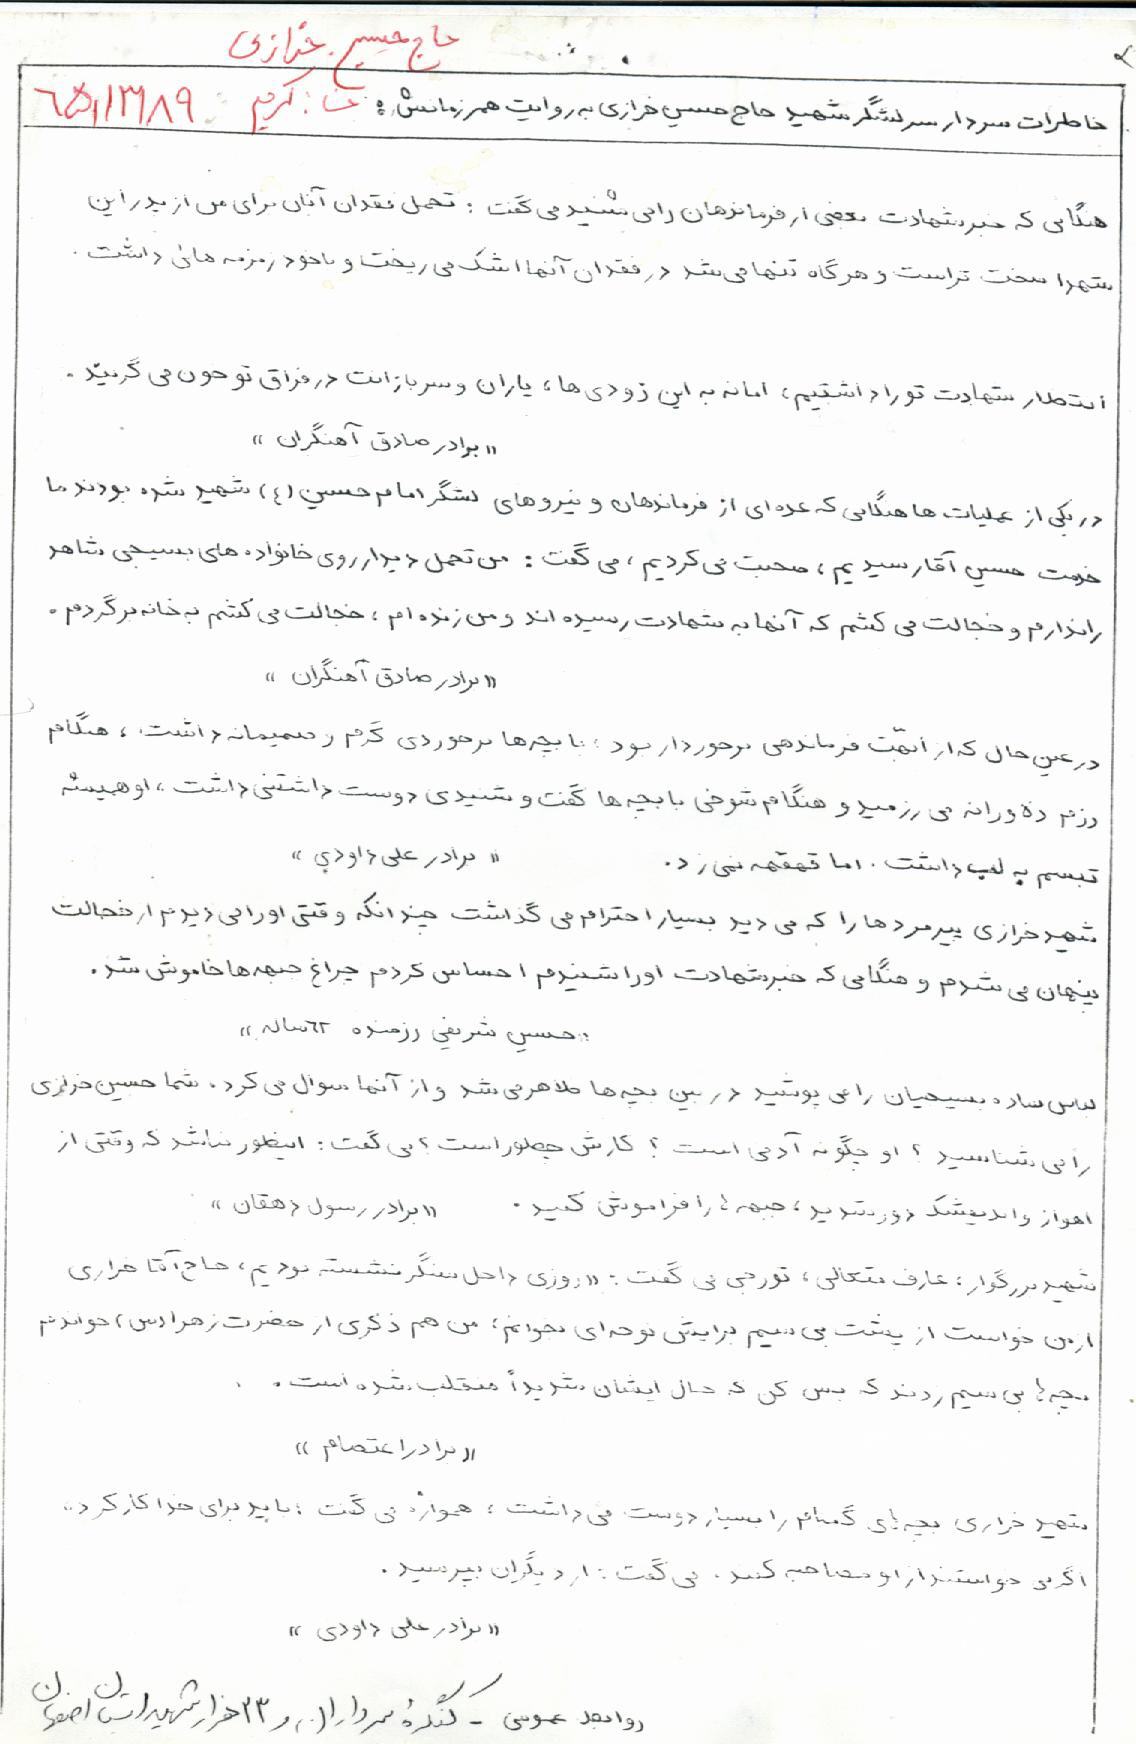 حاج حسین خرازی
خاطرات سردار سرلشگر شهید حاج حسین خرازی به روایت همرزمانش:
هنگامی که خبر شهادت بعضی از فرماندهان را می شنید می گفت: تحمل فقدان آنان برای من از پدر این
شهدا سخت تر است و هرگاه تنها می شد در فقدان آنها اشک می ریخت و با خود زمزمه هائی داشت.
انتظار شهادت تو را داشتیم، اما نه به این زودی ها، یاران و سربازانت در فراق تو خون می گریند.
«برادر صادق آهنگران»
در یکی از عملیات ها هنگامی که عده ای از فرماندهان و نیروهای لشگر امام حسین (ع) شهید شده بودند ما
خدمت حسین آقا رسیدیم، صحبت می کردیم، می گفت: من تحمل دیدار روی خانواده های بسیجی شاهد
را ندارم و خجالت می کشم که آنها به شهادت رسیده اند و من زنده ام، خجالت می کشم به خانه برگردم.
«برادر صادق آهنگران»
در عین حال که از ابهّت فرماندهی برخوردار بود، با بچه ها برخوردی گرم و صمیمانه داشت، هنگام
رزم دلاورانه می رزمید و هنگام شوخی با بچه ها گفت و شنیدی دوست داشتنی داشت، او همیشه
تبسم به لب داشت. اما قهقهه نمی زد. «برادر علی داودی»
شهید خرازی پیرمردها را که می دید بسیار احترام می گذاشت چندانکه وقتی او را می دیدم از خجالت
پنهان می شدم و هنگامی که خبر شهادت او را شنیدم احساس کردم چراغ جبهه ها خاموش شد.
«حسین شریفی رزمنده ۶۲ ساله»
لباس ساده بسیجیان را می پوشید در بین بچه ها ظاهر می شد و از آنها سوال می کرد. شما حسین خرازی
را می شناسید؟ او چگونه آدمی است؟ کارش چطور است؟ می گفت: اینطور نباشد که وقتی از
اهواز و اندیمشک دور شدید، جبهه ها را فراموش کنید. «برادر رسول دهقان»
شهید بزرگوار، عارف متعالی، تورجی می گفت: «روزی داخل سنگر نشسته بودیم، حاج آقا خرازی
از من خواست از پشت بی سیم برایش نوحه ای بخوانم، من هم ذکری از حضرت زهرا (س) خواندم
بچه ها بی سیم زدند که بس کن که حال ایشان شدیداً منقلب شده است.
«برادر اعتصام»
شهید خرازی بچه های گمنام را بسیار دوست می داشت، همواره می گفت: باید برای خدا کار کرد.
اگر می خواستند از او مصاحبه کنند. می گفت: از دیگران بپرسید.
«برادر علی داودی»
روابط عمومی - کنگرهٔ سرداران و ۲۳ هزار شهید استان اصفهان